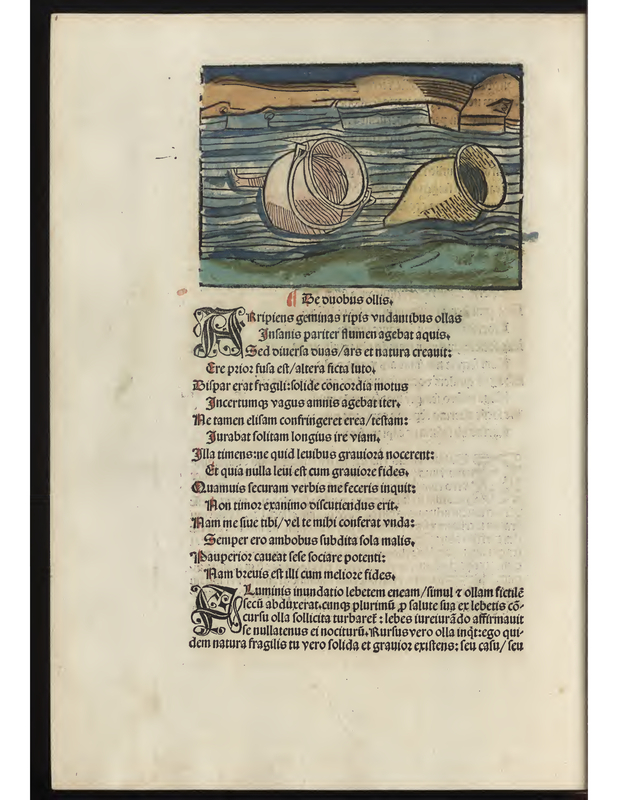 De duobus ollis.
ARripiens geminas ripis vndantibus ollas
Insanis pariter flumen agebat aquis.
Sed diuersa duas/ars et natura creauit:
Ere prior fusa est/altera ficta luto.
Dispar erat fragili:solide concordia motus
Incertumqꝫ vagus amnis agebat iter.
Ne tamen elisam confringeret erea/testam:
Jurabat solitam longius ire viam.
Illa timens:ne quid leuibus grauiora nocerent:
Et quia nulla leui est cum grauiore fides.
Quamuis securam verbis me feceris inquit:
Non timor exanimo discutiendus erit.
Nam me siue tibi/vel te mihi conferat vnda:
Semper ero ambobus subdita sola malis.
Pauperior caueat sese sociare potenti:
Nam breuis est illi cum meliore fides.
FLuminis inundatio lebetem eneam/simul ⁊ ollam fictilē
secū abduxerat.cunqꝫ plurimū ꝓ salute sua ex lebetis cō-
cursu olla sollicita turbaret᷑: lebes iureiurādo affirmauit
se nullatenus ei nociturū. Rursus vero olla inq̇t:ego qui-
dem natura fragilis tu vero solida et grauior existens: seu casu/ seu